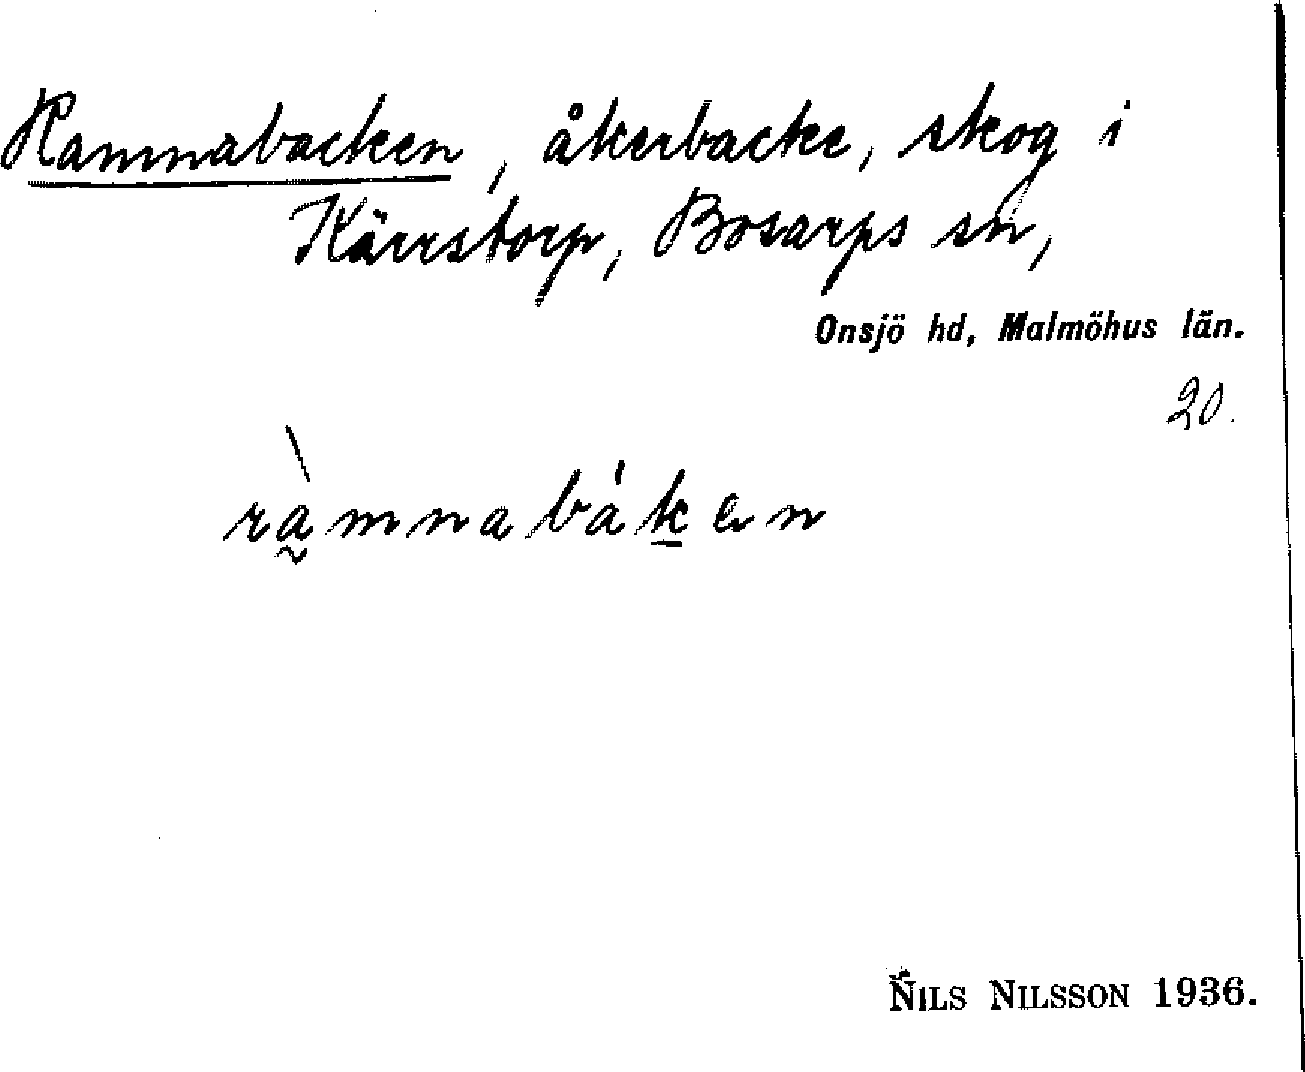 Ramnabacken, åkerbacke, skog i
Kärrstorp, Bosarps sn,
Onsjö hd, Malmöhus län.
20.
ràmnabáken
NILS NILSSON 1936.